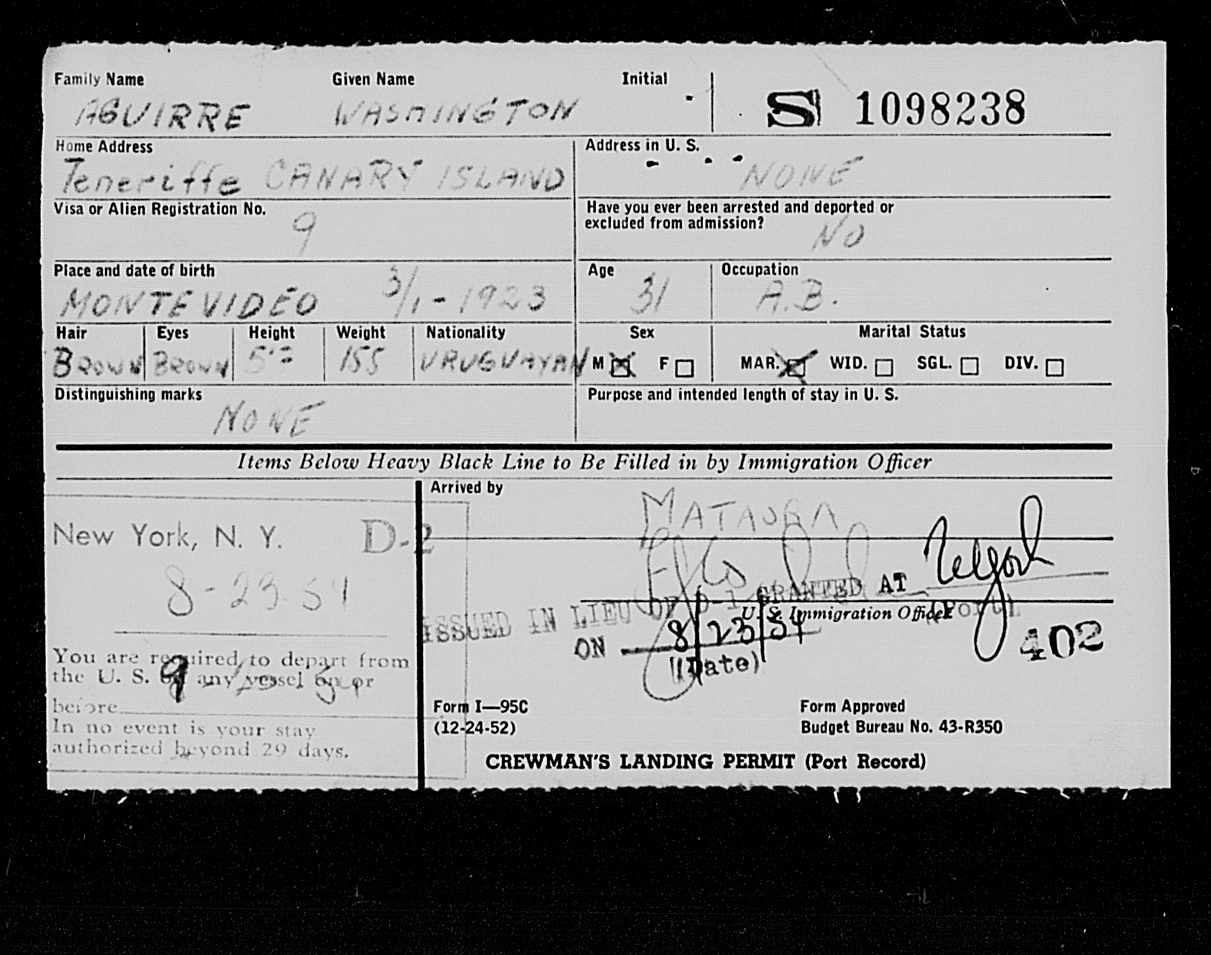 Family Name Given Name Initial
AGUIRRE WASHINGTON S 1098238
Home Address Address in U. S.
Teneriffe CANARY ISLAND NONE
Visa or Alien Registration No. Have you ever been arrested and deported or
9 excluded from admission?
NO
Place and date of birth Age Occupation
MONTEVIDEO 3/1-1923 31 A.B.
Hair Eyes Height Weight Nationality Sex Marital Status
BROWN BROWN 155 URUGUAYAN M F MAR. WID. SGL. DIV.
Distinguishing marks Purpose and intended length of stay in U. S.
NONE
Items Below Heavy Black Line to Be Filled in by Immigration Officer
Arrived by
New York, N. Y. D-2
8-23-54
ISSUED IN LIEU OF D-1 GRANTED AT
U. S. Immigration Officer
(Port)
ON 8/23/54
(Date)
402
You are required to depart from
the U. S. any vessel on or
before
In no event is your stay
authorized beyond 29 days.
Form I—95C Form Approved
(12-24-52) Budget Bureau No. 43-R350
CREWMAN'S LANDING PERMIT (Port Record)